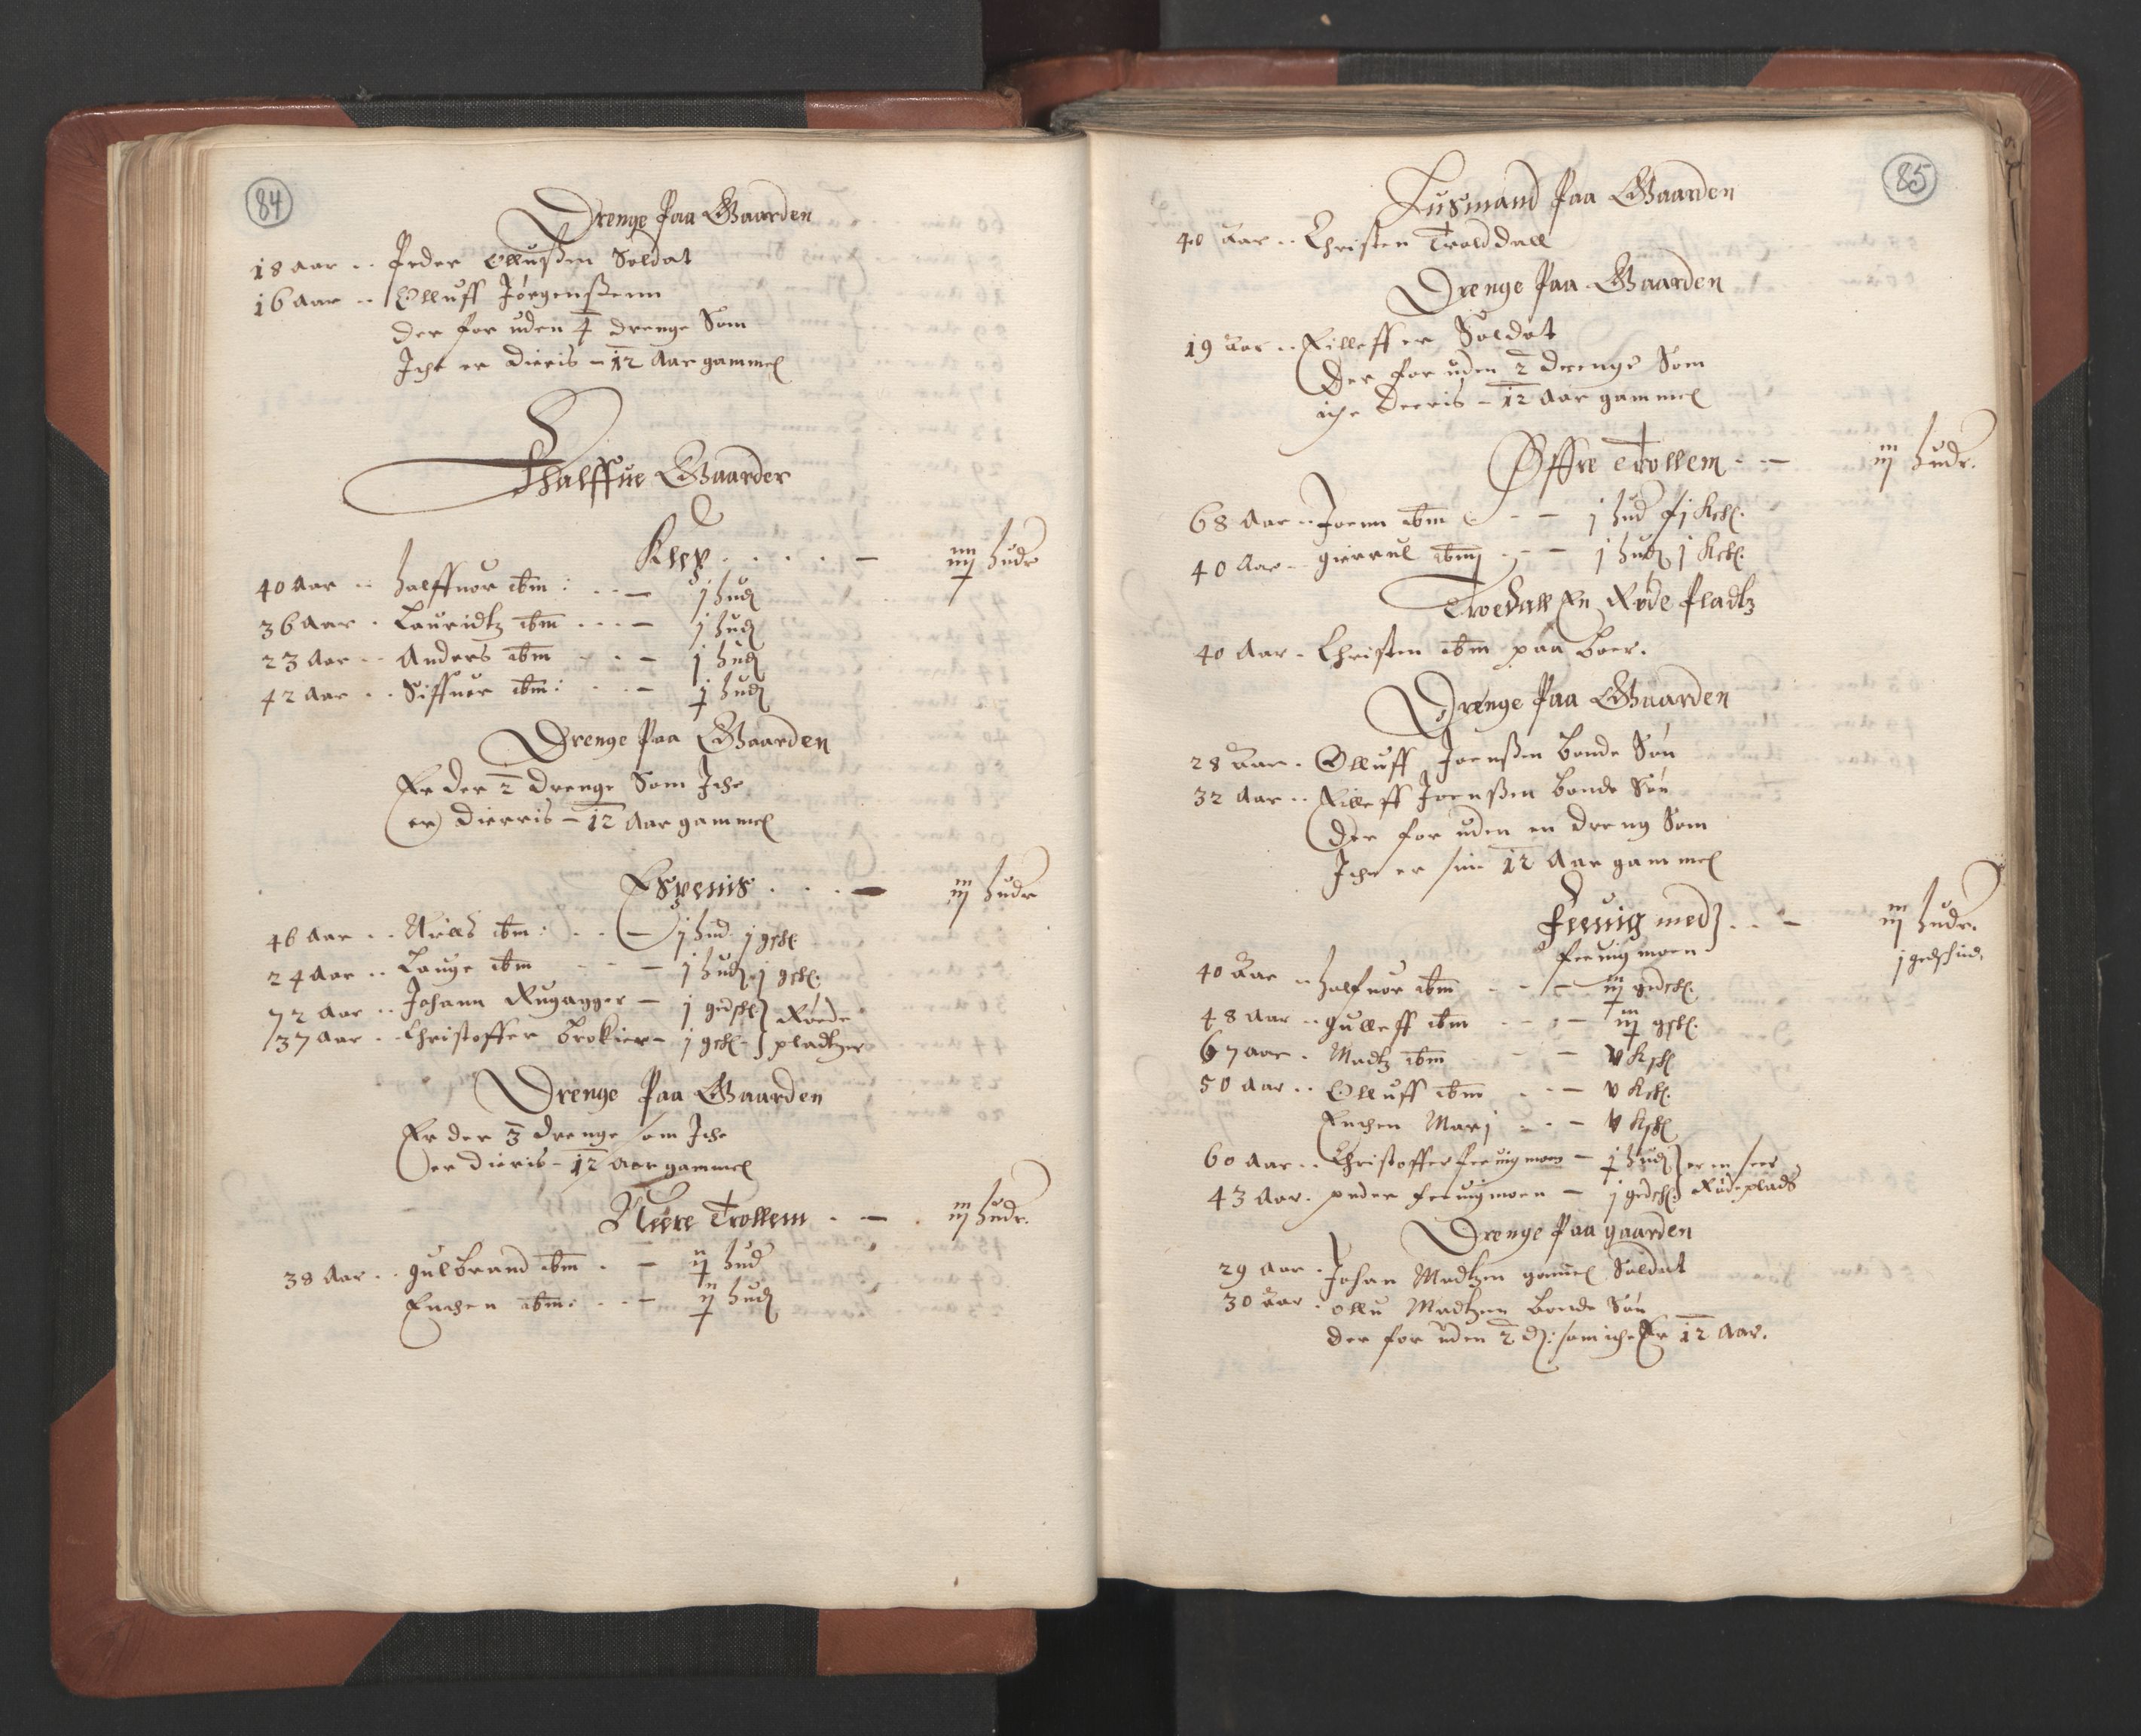 84
Drenge Paa Gaarden
18 aar .. Peder Ollufßen Soldat
16 Aar .. Olluff Jørgenßenn
der for uden 4 drenge Som
Iche er Dieris - 12 Aar gammel
Halffue Gaarder
Klep . . . . . — iiij hudr
40 Aar .. Halffuor ibm : . . — j hud
36 Aar . Lauridtz ibm . . . — j hud
23 Aar .. Anders ibm . . — j hud
42 Aar .. Siffuer ibm : . . — j hud
Drenge Paa Gaarden
Er der 2 Drenge Som Iche
er Dierris - 12 Aar gammel
Espenis . . . — iij hudr
46 Aar .. Niels ibm : . . — j hud j gsk.
24 Aar .. Lauge ibm . . — j hud j gsk.
72 Aar .. Johann Rugagger — j gedsk } Røede
37 Aar . Christoffer Brokier — j gsk } pladtzer
Drenge Paa Gaarden
Er der 3 drenge som Iche
er Dieris - 12 Aar gammel
Neere Trollem . — . iij hudr.
38 Aar .. gulbrand ibm . — ij hud
Enchen ibm : . . — ij hud
85
Husmand Paa Gaarden
40 Aar .. Christen Trolddall
Drenge Paa Gaarden
19 Aar .. Eilleff er Soldat
Der for uden 2 Drenge Som
iche Deeris - 12 Aar gammel
Øffre Trollem . — iij hudr.
68 Aar .. Joenn ibm . - — j hud j Ksk.
40 Aar .. gierrul ibm . - — j hud j Ksk.
Troedall En Røde Pladtz
40 Aar . Christen ibm paa boer.
Drenge Paa Gaarden
28 Aar . Olluff Joenßen bonde Søn
32 Aar .. Eilleff Joenßen bonde Søn
Der for uden en dreng Som
Iche er sine 12 Aar gammel
Feeuig med } . . — iij hudr.
feeuigmoen j gedshud.
40 Aar .. halfuor ibm - - — iij gedsk.
48 Aar .. gulleff ibm - - — iij gsk.
67 Aar . Madtz ibm - — v Ksk
50 Aar .. Olluff ibm . . — v Ksk.
Enchen Marj . . — v Ksk
60 Aar .. Christoffer feeuigmoen — j hud } er en
43 Aar . peder feeuigmoen — j gedsk. } Rødeplads
Drenge Paa gaarden
29 Aar . Johan Madtzen gammel Soldat
30 Aar . ollu Madtzen bonde Søn
der for uden 2 D: som iche Er 12 Aar.